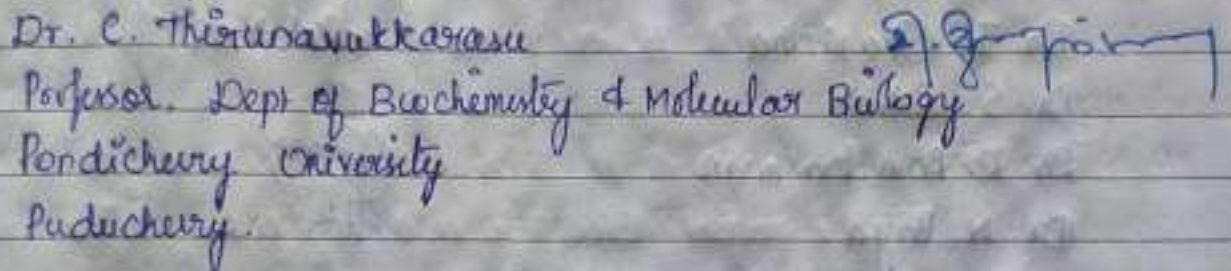 Dr. C. Thirunavukkarasu
Professor. Dept of Biochemistry & Molecular Biology
Pondicherry University
Puducherry.